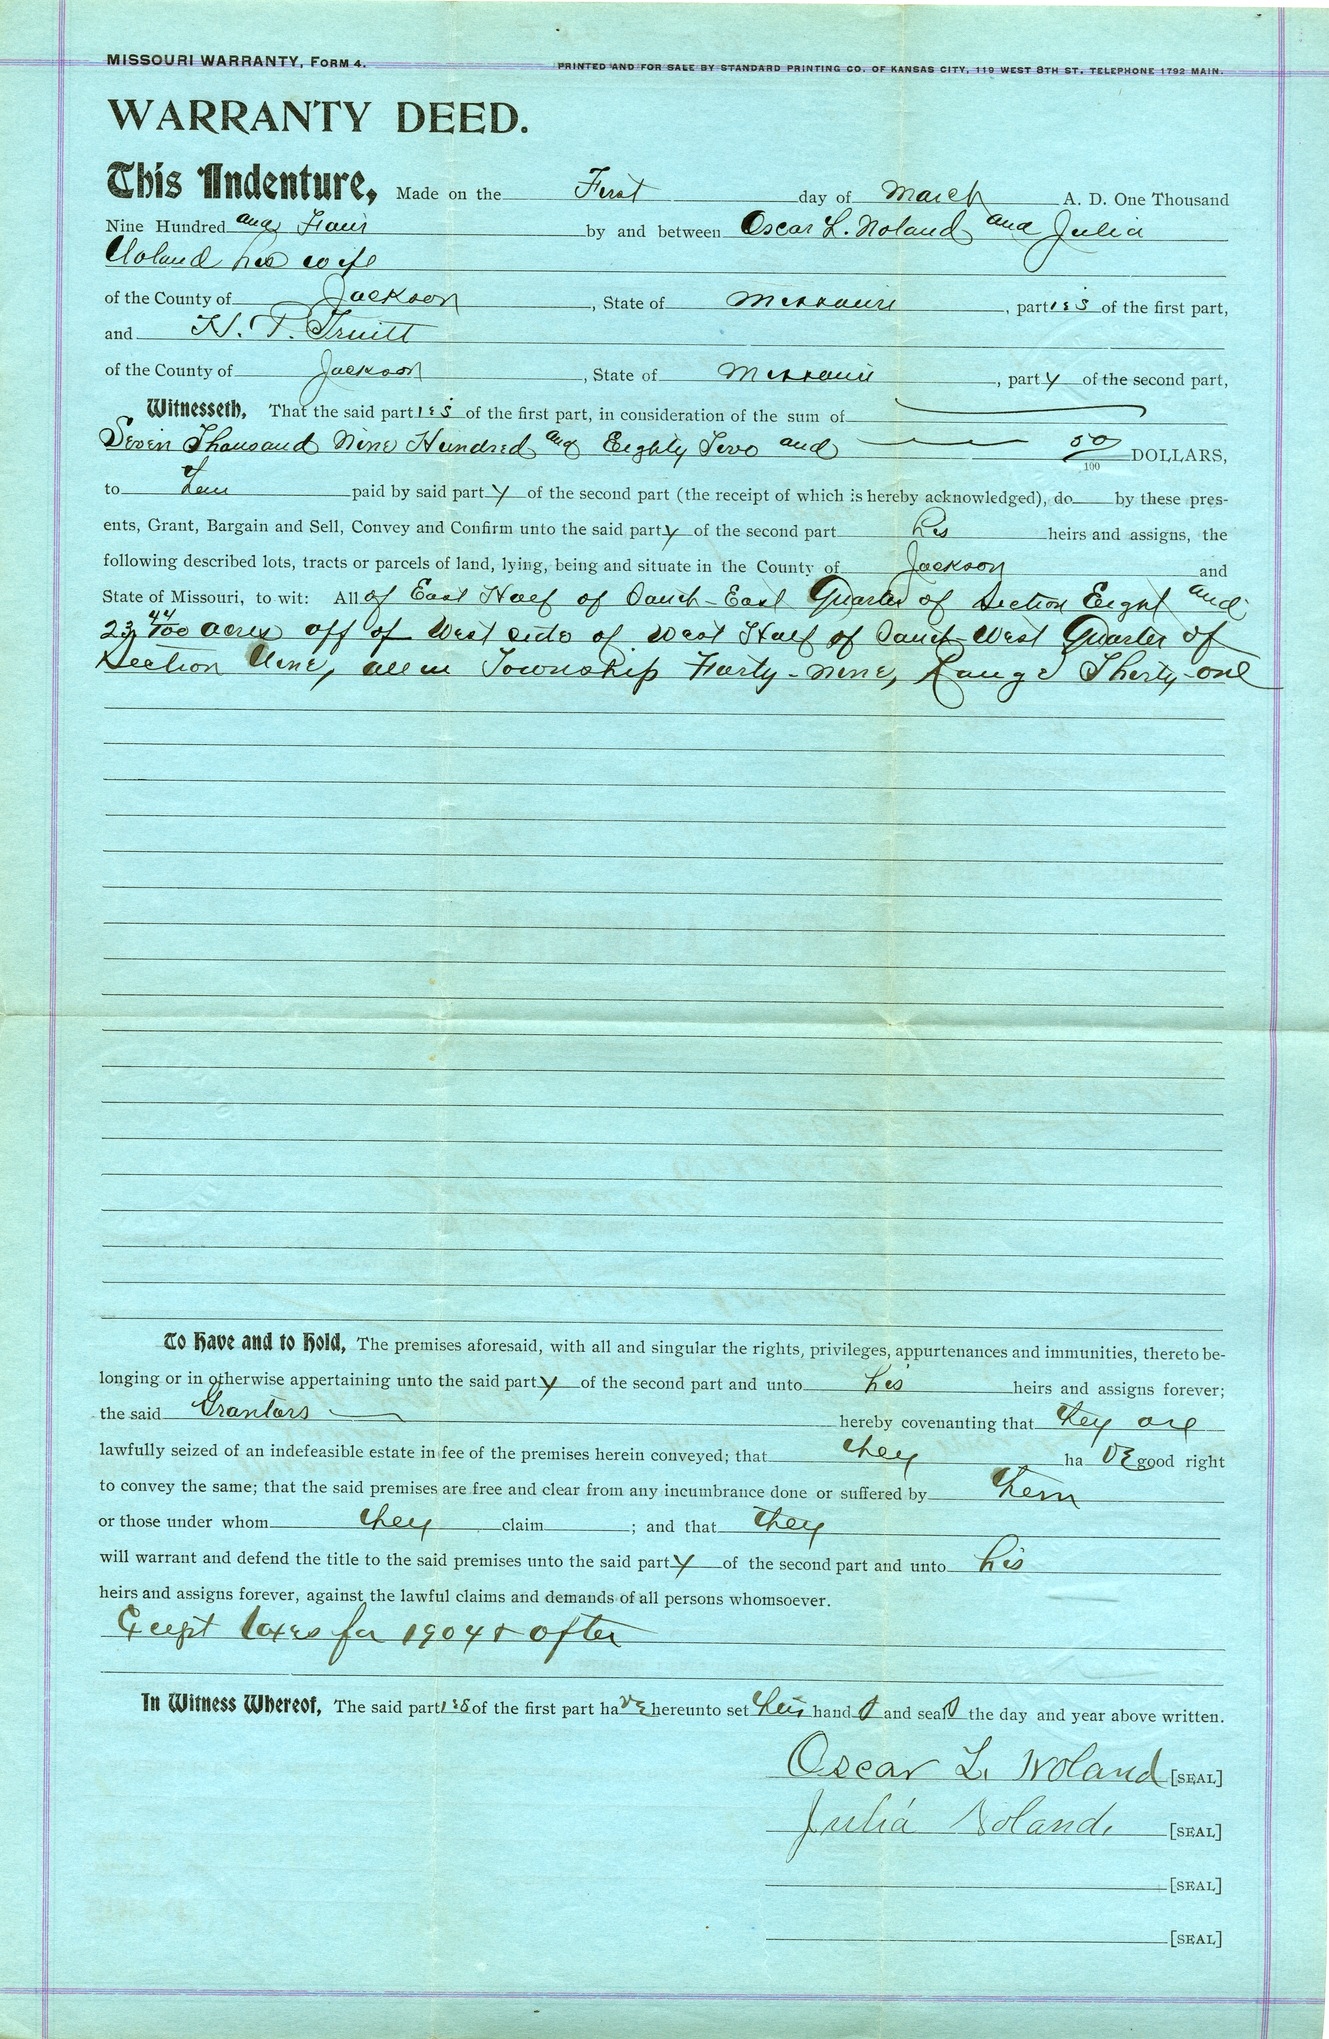 MISSOURI WARRANTY, FORM 4.
PRINTED AND FOR SALE BY STANDARD PRINTING CO. OF KANSAS CITY, 119 WEST 8TH ST. TELEPHONE 1792 MAIN.
WARRANTY DEED.
This Indenture, Made on the First day of March A. D. One Thousand
Nine Hundred and Four by and between Oscar L. Noland and Julia
Noland his wife
of the County of Jackson, State of Missouri, parties of the first part,
and H. T. Truitt
of the County of Jackson, State of Missouri, party of the second part,
Witnesseth, That the said parties of the first part, in consideration of the sum of
Seven Thousand Nine Hundred and Eighty Two and 50/100 DOLLARS,
to paid by said party of the second part (the receipt of which is hereby acknowledged), do by these pres-
ents, Grant, Bargain and Sell, Convey and Confirm unto the said party of the second part his heirs and assigns, the
following described lots, tracts or parcels of land, lying, being and situate in the County of Jackson and
State of Missouri, to wit: All of East Half of South-East Quarter of Section Eight and
23 44/100 acres off of West side of West Half of South West Quarter of
Section Nine, all in Township Forty-nine, Range Thirty-one
To Have and to Hold, The premises aforesaid, with all and singular the rights, privileges, appurtenances and immunities, thereto be-
longing or in otherwise appertaining unto the said party of the second part and unto his heirs and assigns forever;
the said Grantors hereby covenanting that they are
lawfully seized of an indefeasible estate in fee of the premises herein conveyed; that they have good right
to convey the same; that the said premises are free and clear from any incumbrance done or suffered by them
or those under whom they claim; and that they
will warrant and defend the title to the said premises unto the said party of the second part and unto his
heirs and assigns forever, against the lawful claims and demands of all persons whomsoever.
Except taxes for 1904 & after
In Witness Whereof, The said parties of the first part have hereunto set their hands and seals the day and year above written.
Oscar L. Noland [SEAL]
Julia Noland. [SEAL]
[SEAL]
[SEAL]